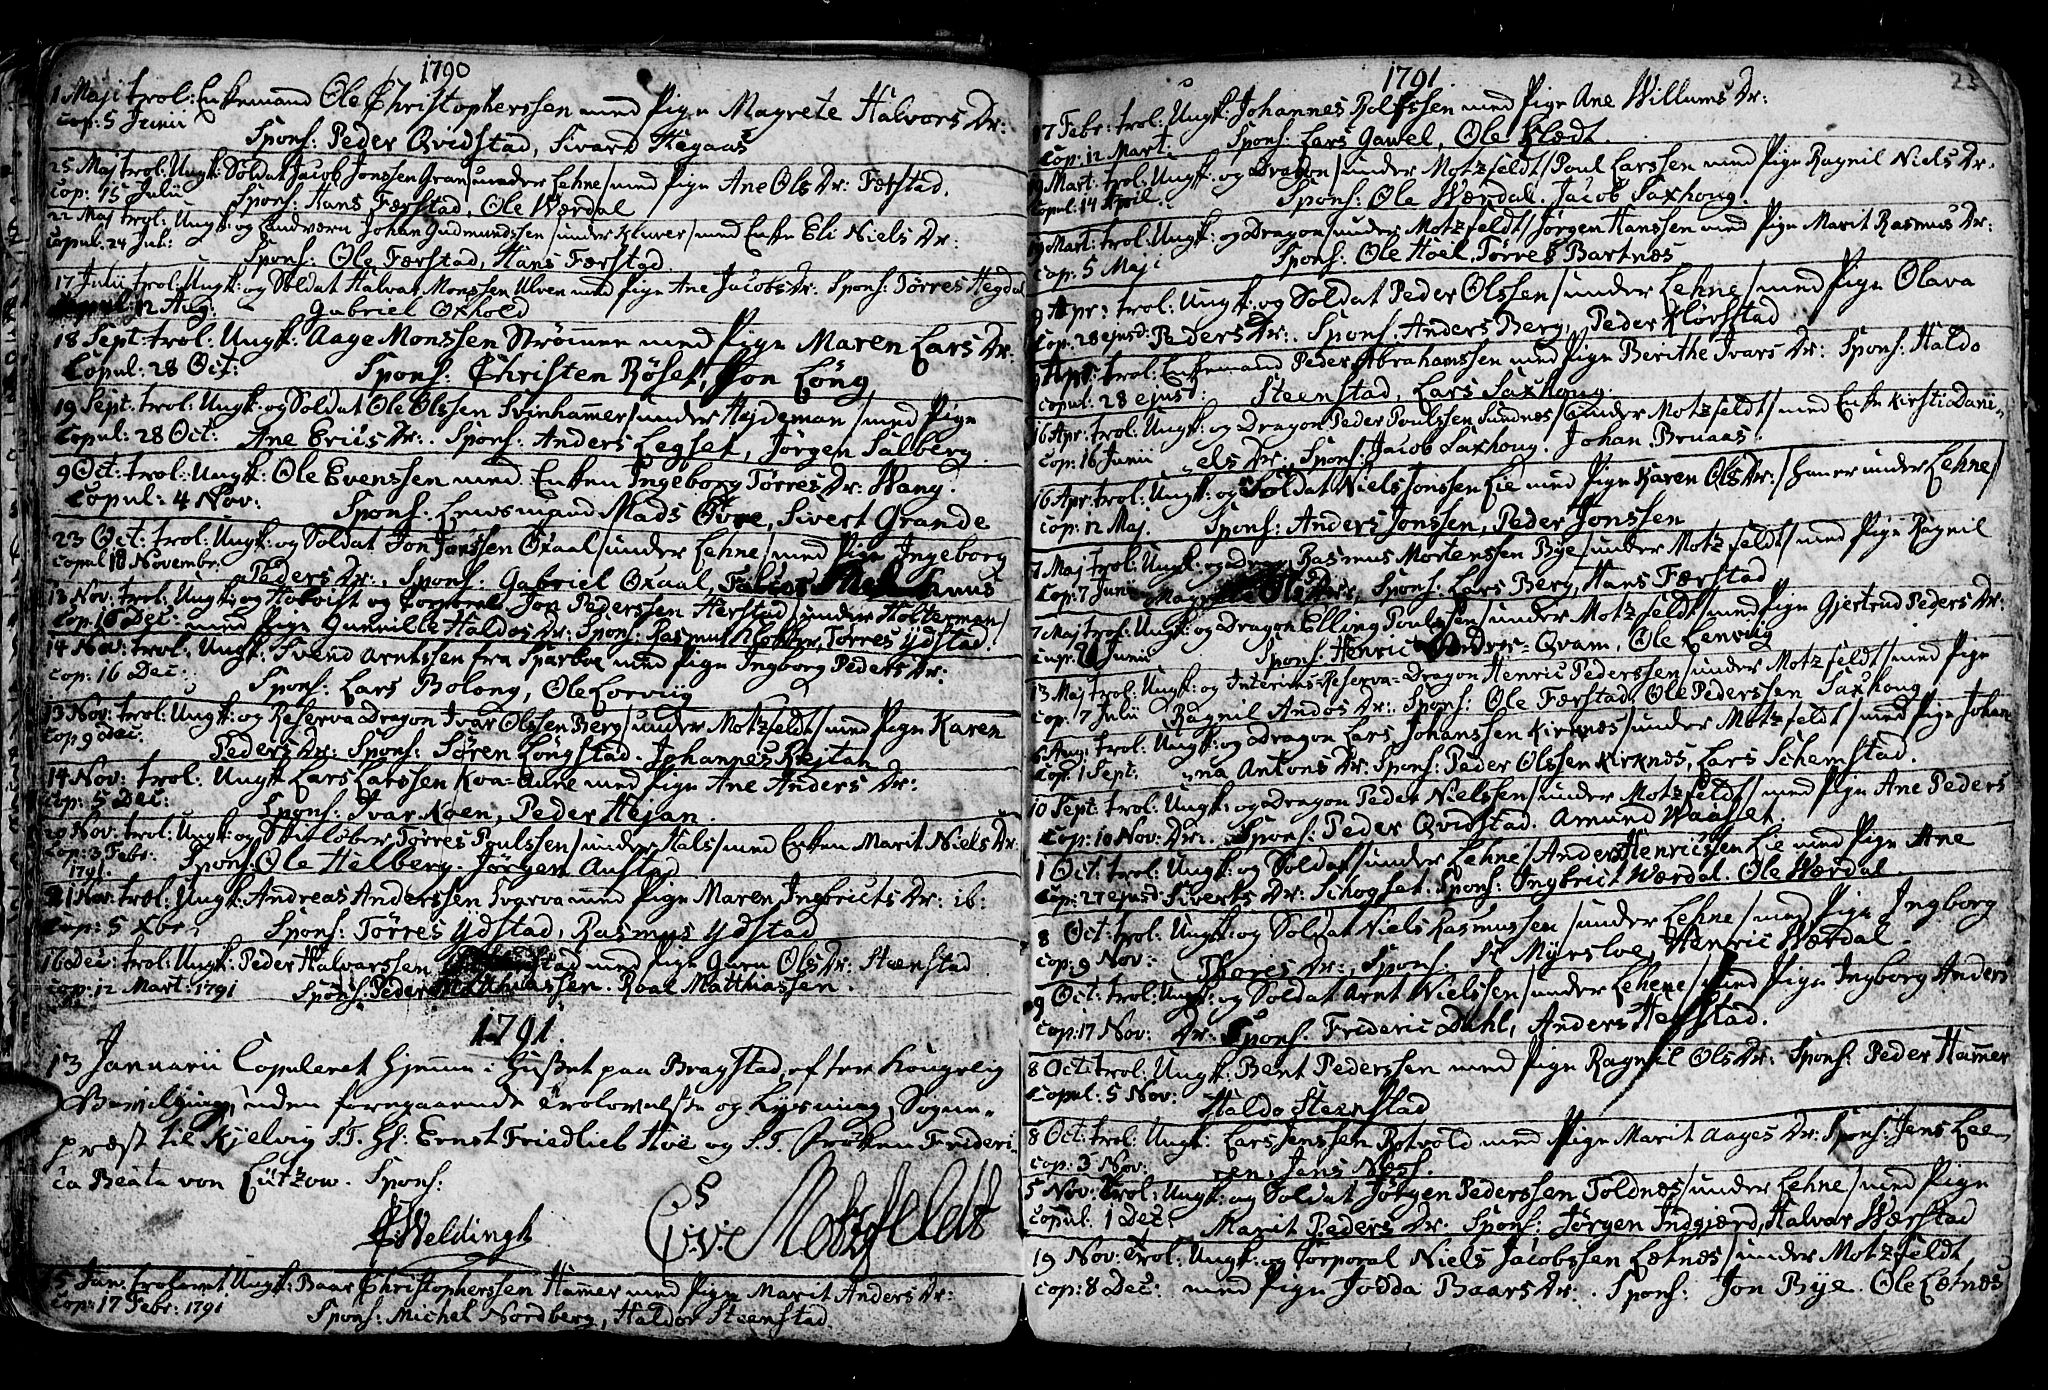 1790
1 Maji trol: Enkemand Ole Christopherssen med Pige Magrete Halvors Dr:
Cop: 5 Junii
Spons: Peder Qvidstad, Sivard Hegaas
25 Maj trol: Ungk: Soldat Jacob Jonssen Gran /under Lehne/ med Pige Ane Ols Dr: Færstad.
Cop: 15 Julii Spons: Hans Færstad, Ole Wærdal
22 Maj trol: Ungk: og Landværn Johan Gudmundssen /under Kluver/ med Enke Eli Niels Dr:
Copul: 24 Jul:
Spons: Ole Færstad, Hans Færstad.
17 Julii trol: Ungk: og Soldat Halvar Monssen Ulven med Pige Ane Jacobs Dr: Spons: Törres Hegdal
Copul: 12 Aug: Gabriel Oxhold
18 Sept: trol: Ungk: Aage Monssen Strömen med Pige Maren Lars Dr:
Copul: 28 Oct: Spons: Christen Röset, Jon Löng
19 Sept. trol: Ungk: og Soldat Ole Olssen Svinhamer /under Hejdeman/ med Pige
Copul: 28 Oct: Ane Erics Dr: Spons: Anders Legset, Jörgen Salberg
9 Oct: trol: Ungk: Ole Evenssen med Enken Ingeborg Törres Dr: Wang.
Copul: 4 Nov: Spons: Lensmand Mads Övre, Sivert Grande
23 Oct: trol: Ungk: og Soldat Jon Jonssen Oxaal /under Lehne/ med Pige Ingeborg
Copul 18 Novembr: Peders Dr: Spons: Gabriel Oxaal,
13 Nov: trol: Ungk: og Hoboist og Corporal Jon Pederssen Herstad /under Holterman/
Cop: 16 Dec: med Pige Gunnille Haldos Dr: Spons: Rasmus Törres Ydstad.
14 Nov: trol: Ungk: Svend Arntssen fra Sparboe med Pige Ingborg Peders Dr:
Cop: 16 Dec: Spons: Lars Bolong, Ole Lorviig
13 Nov: trol: Ungk: og Reserva Dragon Ivar Olssen Berg /under Motzfeldt/ med Pige Karen
Cop 9 Dec. Peders Dr: Spons: Sören Longstad. Johannes Rejtan
14 Nov: trol: Ungk: Lars Larssen Koa-Aune med Pige Ane Anders Dr:
Cop: 5 Dec: Spons: Ivar Koen, Peder Hejan.
20 Nov: trol: Ungk: og Skielöber Törres Poulssen /under Hals/ med Enken Marit Niels Dr:
Cop: 3 Febr: 1791. Spons: Ole Helberg. Jörgen Austad
21 Nov: trol: Ungk: Andreas Anderssen Svarva med Pige Maren Ingbricts Dr: ib:
Cop: 5 Xbr: Spons: Törres Ydstad, Rasmus Ydstad
16 Dec: trol: Ungk: Peder Halvarssen med Pige Guru Ols Dr: Steenstad
Cop: 12 Mart: 1791 Spons: Peder Matthiassen. Roal Matthiassen.
1791.
13 Januarii Copuleret hjemme i Huset paa Bragstad, efter Kongelig
Bevilgning, uden foregaaende Trolovelse og Lysning, Sogne-
præst til Kjelvig S.T. Hr: Ernst Friedlieb Hoe og S.T. Fröken Frideri-
ca Beata von Lützow. Spons:
Weldingh Motzfeldt
15 Jan. trolovet Ungk: Baar Christopherssen Hamer med Pige Marit Anders Dr:
Cop: 17 Febr: 1791
Spons: Michel Nordberg, Haldor Steenstad.
1791
17 Febr: trol: Ungk: Johannes Rolfssen med Pige Ane Willums Dr:
Cop: 12 Mart: Spons: Lars Gawel, Ole Klædt.
9 Mart: trol: Ungk: og Dragon /under Motzfeldt/ Poul Larssen med Pige Ragnil Niels Dr.
Copul: 14 April. Spons: Ole Wærdal. Jacob Saxhoug.
19 Mart: trol: Ungk: og Dragon /under Motzfeldt/ Jörgen Hanssen med Pige Marit Rasmus Dr:
Cop: 5 Maji Spons: Ole Hoel, Törres Bartnæs
9 Apr: trol: Ungk: og Soldat Peder Olssen /under Lehne/ med Pige Olava
Cop: 28 ejusd: Peders Dr: Spons: Anders Berg, Peder Klovstad
9 Apr: trol: Enkemand Peder Abrahamssen med Pige Berithe Ivars Dr: Spons: Haldo
Copul: 28 ejusd: Steenstad, Lars Saxhoug.
16 Apr: trol: Ungk: og Dragon Peder Poulssen Sundnæs /under Motzfeldt/ med Enke Kirsti Dani-
Cop: 16 Junii els Dr: Spons: Jacob Saxhoug. Johan Bruaas.
16 Apr: trol: Ungk: og Soldat Niels Jonssen Lie med Pige Karen Ols Dr: /hamer under Lehne/
Cop: 12 Maj. Spons: Anders Jonssen, Peder Jonssen
7 Maj trol: Ungk: og Dragon Rasmus Mortenssen Bye /under Motzfeldt/ med Pige Ragnil
Cop: 7 Juni Spons: Lars Berg, Hans Færstad
7 Maj trol: Ungk: og Dragon Elling Poulssen /under Motzfeldt/ med Pige Gjertrud Peders Dr:
Cop: Junii Spons: Henric Qvam, Ole Lenviig
13 Maj trol: Ungk: og Interims-Reserva-Dragon Henric Pederssen /under Motzfeldt/ med Pige
Cop: 7 Julii Ragnil Andos Dr: Spons: Ole Færstad, Ole Pederssen Saxhoug
6 Aug: trol: Ungk: og Dragon Lars Johanssen Kirknæs /under Motzfeldt/ med Pige Johan
Cop: 1 Sept. na Antons Dr: Spons: Peder Olssen Kirknæs, Lars Schemstad.
10 Sept: trol: Ungk: og Dragon Peder Nielssen /under Motzfeldt/ med Pige Ane Peders
Cop: 10 Nov: Dr: Spons: Peder Qvidstad. Amund Waaset.
1 Oct: trol: Ungk: og Soldat /under Lehne/ Anders Henricssen Lie med Pige Ane
Cop: 27 ejusd: Siverts Dr: Schogset. Spons: Ingbrict Wærdal. Ole Wærdal.
8 Oct: trol: Ungk: og Soldat Niels Rasmussen /under Lehne/ med Pige Ingborg
Cop: 9 Nov: Thoris Dr: Spons: Myrsloe, Henric Wærdal.
9 Oct: trol: Ungk: og Soldat Arnt Nielssen /under Lehne/ med Pige Ingborg Anders
Cop: 17 Nov: Dr: Spons: Frideric Dahl, Anders Herstad.
8 Oct: trol: Ungk: Bent Pederssen med Pige Ragnil Ols Dr: Spons: Peder Hamer
Copul: 5 Nov: Haldo Steenstad
8 Oct: trol: Ungk: Lars Jenssen Rotvold med Pige Marit Aages Dr: Spons: Jens Lee-
Cop: 3 Nov: en, Jens Næss.
5 Nov: trol: Ungk: og Soldat Jörgen Pederssen Toldnæs /under Lehne/ med Pige
Copul: 1 Dec: Marit Peders Dr. Spons: Jörgen Indgjærd, Halvar Wærstad
19 Nov: trol: Ungk: og Corporal Niels Jacobssen Lætnæs /under Motzfeldt
Cop: 8 Dec: med Pige Jodda Baars Dr: Spons: Jon Bye. Ole Lætnæs